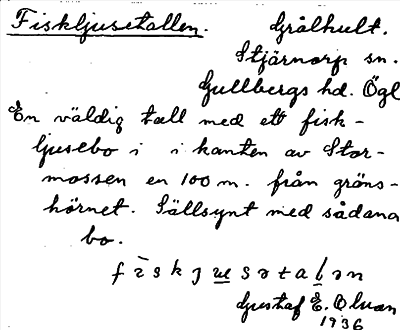 Fiskljusetallen. Grålhult.
Stjärnorp sn.
Gullbergs hd. Ögl
En väldig tall med ett fisk-
ljusebo i i kanten av Stor-
mossen en 100 m. från gräns-
hörnet. Sällsynt med sådana
bo.
Gustaf E. Olsson
1936